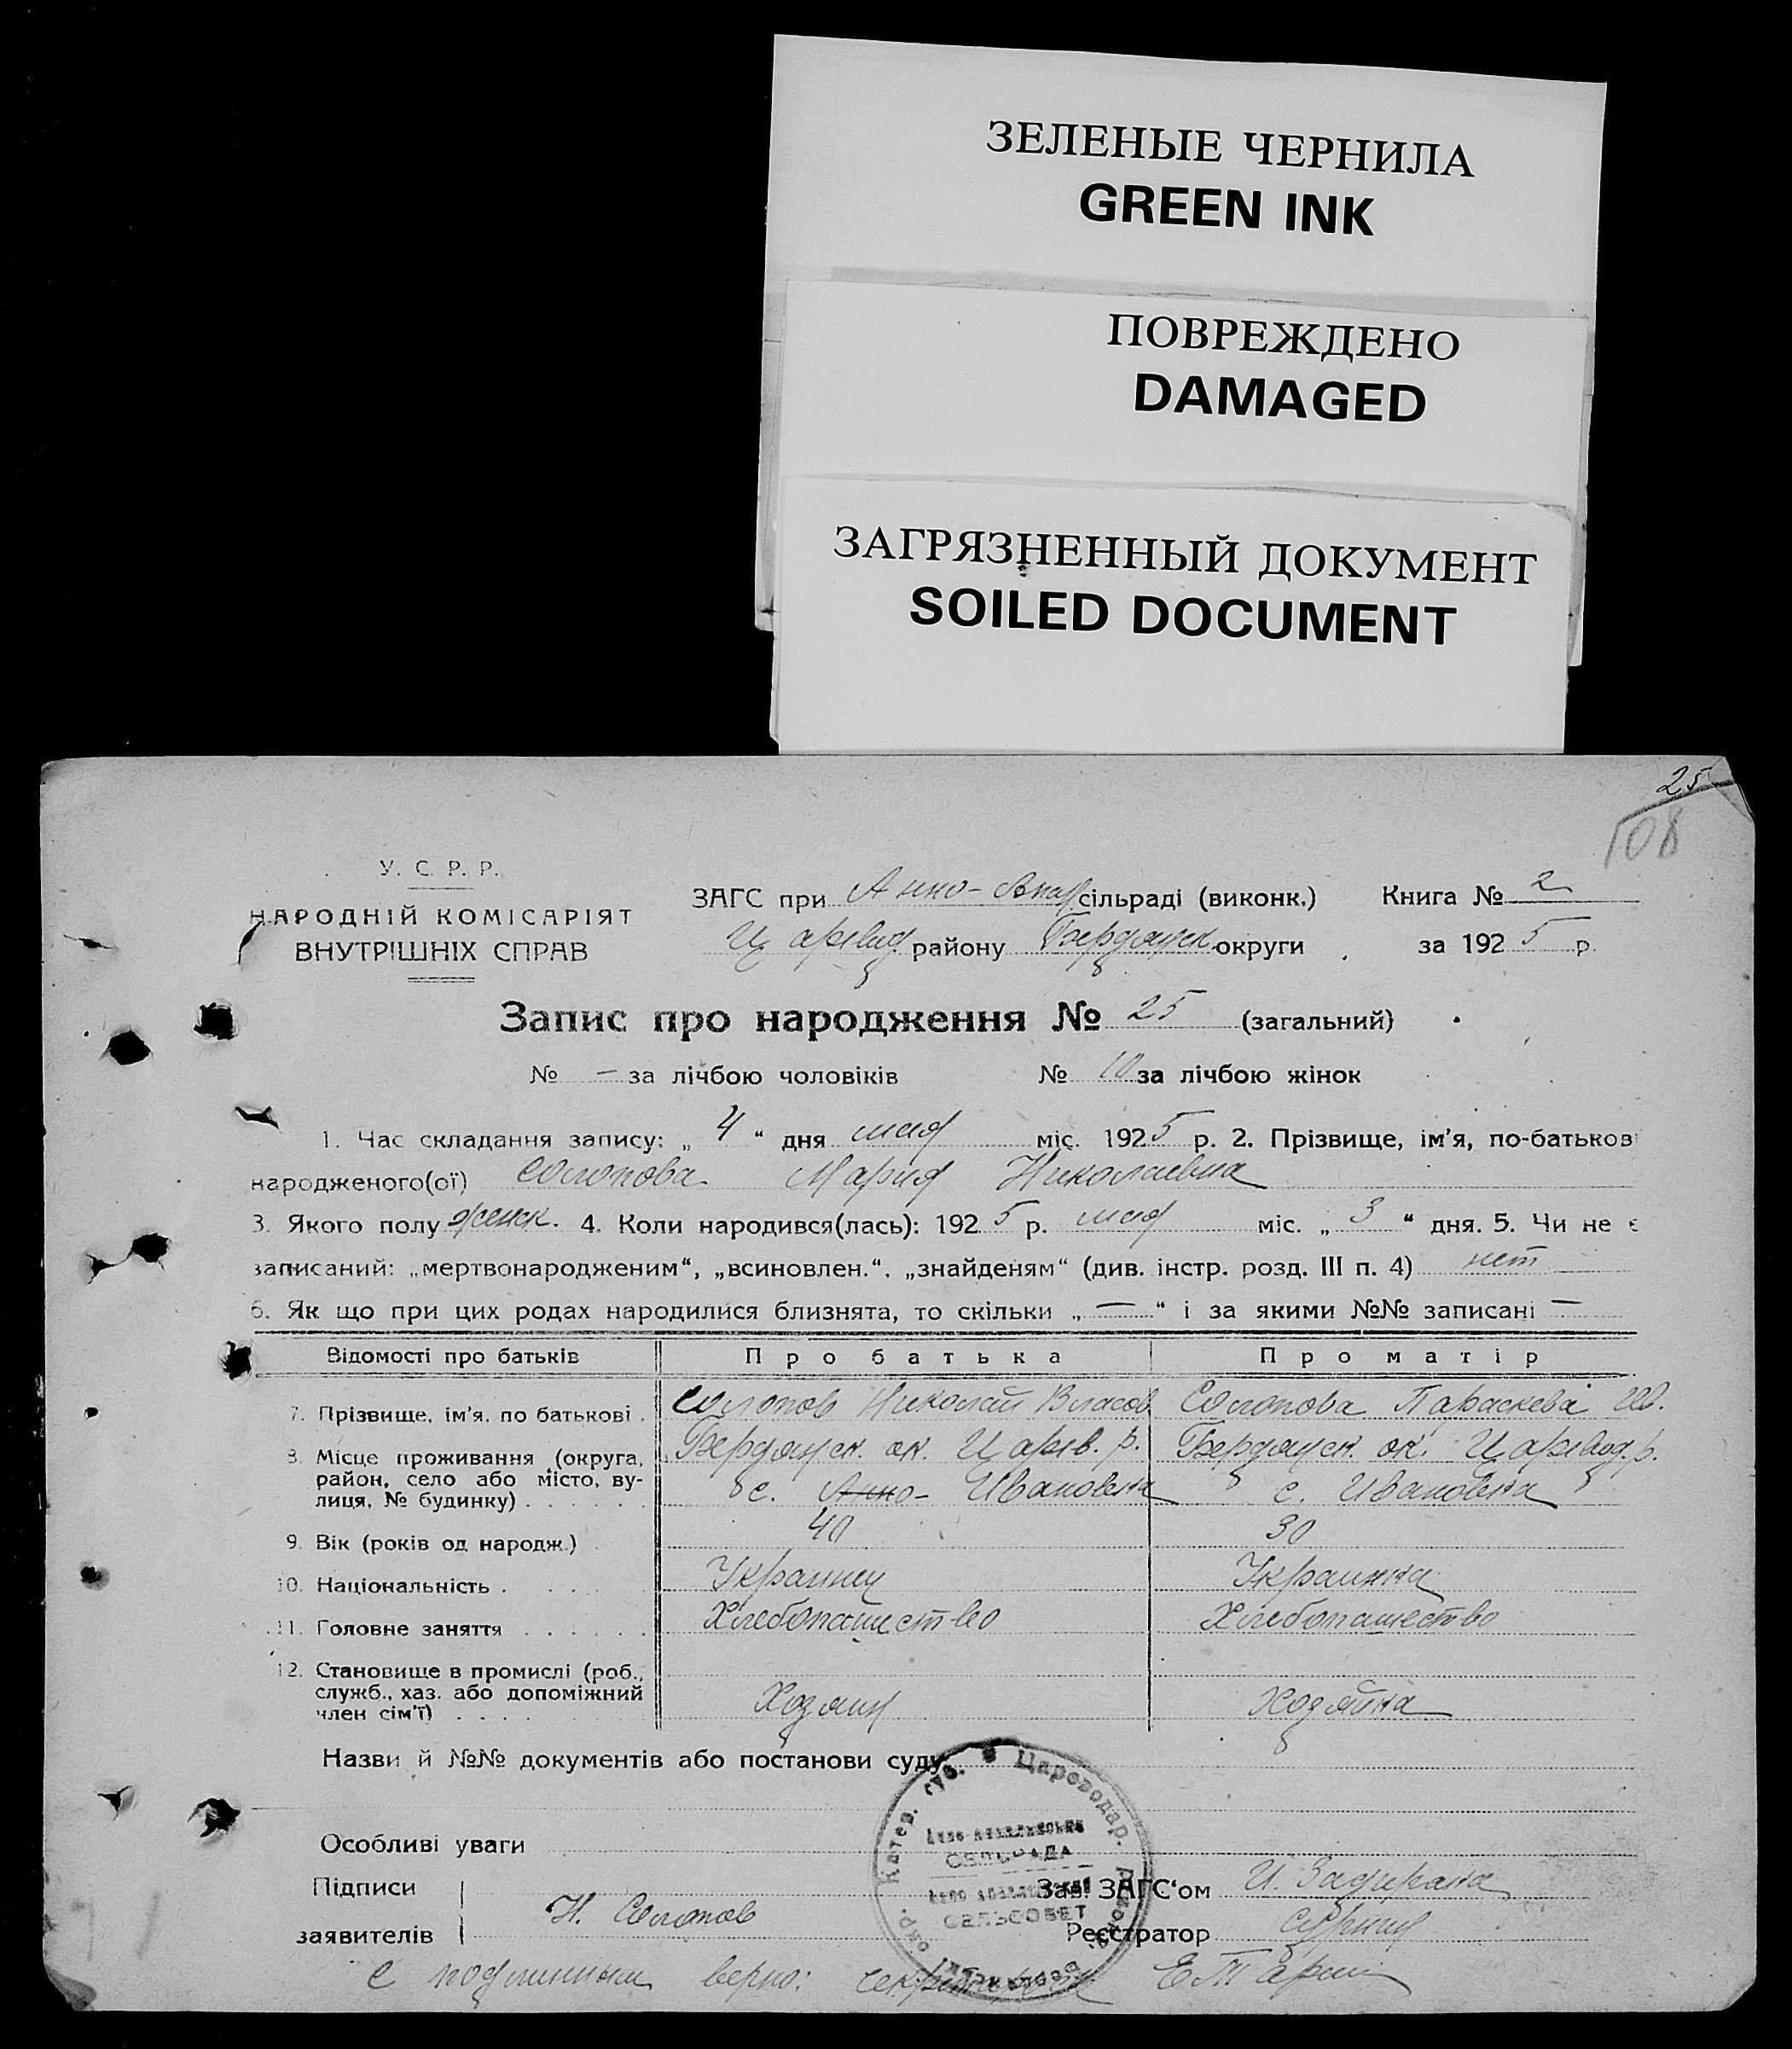 ЗЕЛЕНЫЕ ЧЕРНИЛА
GREEN INK
ПОВРЕЖДЕНО
DAMAGED
ЗАГРЯЗНЕННЫЙ ДОКУМЕНТ
SOILED DOCUMENT
25
108
У. С. Р. Р.
НАРОДНІЙ КОМІСАРІЯТ
ВНУТРІШНІХ СПРАВ
ЗАГС при Анно- сільраді (виконк.) Книга № 2
Царевод району Бердянск округи за 1925 р.
Запис про народження № 25 (загальний)
№ — за лічбою чоловіків № 10 за лічбою жінок
1. Час складання запису: „ 4 “ дня мая міс. 1925 р. 2. Прізвище, ім’я, по-батькові
народженого(ої) Солопова Мария Николаевна
3. Якого полу женск. 4. Коли народився(лась): 1925 р. мая міс. „ 3 “ дня. 5. Чи не є
записаний: „мертвонародженим“, „всиновлен.“, „знайденям“ (див. інстр. розд. III п. 4) нет
6. Як що при цих родах народилися близнята, то скільки „ — “ і за якими №№ записані —
Відомості про батьків Про батька Про матір
7. Прізвище, ім’я, по батькові . Солопов Николай Власов Солопова Параскева Ив.
8. Місце проживання (округа, район, село або місто, ву- лиця, № будинку) . . . . . . Бердянск. ок. Царев. р. с. Анно- Ивановка Бердянск. ок. Царевод. р. с. Ивановка
9. Вік (років од народж.) 40 30
10. Національність . . . . Украинец Украинка
11. Головне заняття . . . . . . Хлебопашество Хлебопашество
12. Становище в промислі (роб., служб., хаз. або допоміжний член сім’ї) . . . . Хозяин Хозяйка
Назви й №№ документів або постанови суду
Особливі уваги
Катер. губ. Цареводар. району
СЕЛЬРАДА
СЕЛЬСОВЕТ
Підписи
заявителів Н. Солопов
Зав. ЗАГС‘ом И. Задирака
Реєстратор
С подлинным верно: секретарь